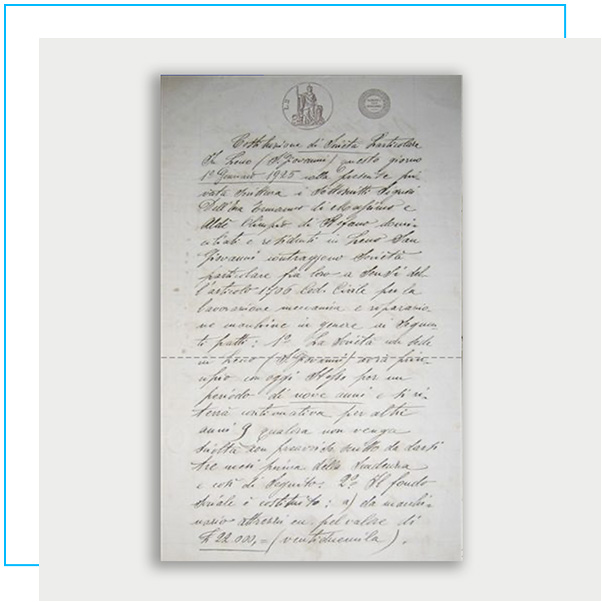 Costituzione di Società Particolare
In Leno (S. Giovanni) questo giorno
1° Gennaio 1925 colla presente pri
vata scrittura i sottoscritti Signori
Dell'Era Ermanno di Massimo e
Aldo Olimpio di Stefano domi-
ciliati e residenti in Leno San
Giovanni contraggono Società
particolare fra loro a sensi del
l'articolo 1706 Cod. Civile per la
lavorazione meccanica e riparazio
ne macchine in genere ai seguen
ti patti: 1° La Società con sede
in Leno (S. Giovanni) avrà prin-
cipio con oggi stesso per un
periodo di nove anni e si ri-
terrà continuativa per altri
anni 9 qualora non venga
disdetta con preavviso scritto da darsi
tre mesi prima della scadenza
e così di seguito. 2° Il fondo
sociale è costituito: a) da macchi-
nario attrezzi ecc. pel valore di
£ 22.000,= (ventiduemila).